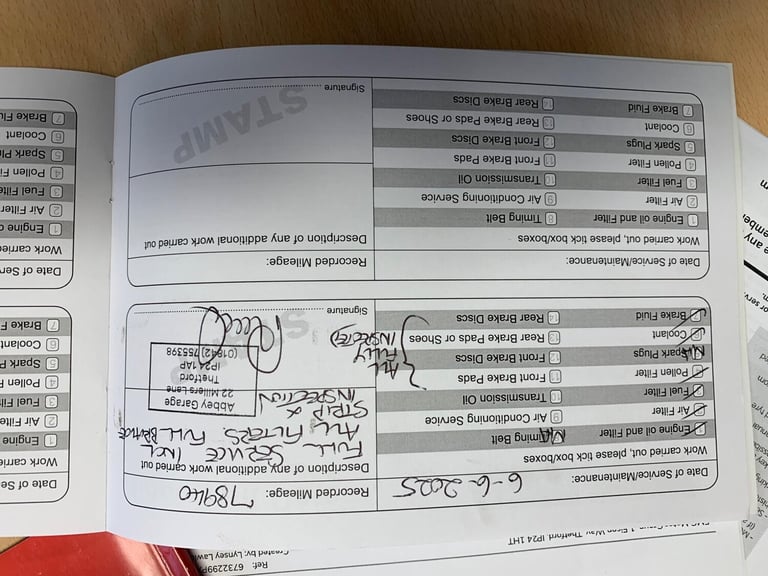 Date of Service/Maintenance: 6-6-2025
Recorded Mileage: 78940
Work carried out, please tick box/boxes
1 Engine oil and Filter
8 Timing Belt N/A
2 Air Filter
9 Air Conditioning Service
3 Fuel Filter
10 Transmission Oil
4 Pollen Filter
11 Front Brake Pads
5 Spark Plugs N/A
12 Front Brake Discs
6 Coolant
13 Rear Brake Pads or Shoes
7 Brake Fluid
14 Rear Brake Discs
ALL
FULLY
INSPECTED
Description of any additional work carried out
FULL SERVICE INCL
ALL FILTERS FULL BRAKE
STRIP &
INSPECTION
Abbey Garage
22 Millers Lane
Thetford
IP24 1AP
(01842) 755398
STAMP
Signature
Date of Service/Maintenance:
Recorded Mileage:
Work carried out, please tick box/boxes
1 Engine oil and Filter
8 Timing Belt
2 Air Filter
9 Air Conditioning Service
3 Fuel Filter
10 Transmission Oil
4 Pollen Filter
11 Front Brake Pads
5 Spark Plugs
12 Front Brake Discs
6 Coolant
13 Rear Brake Pads or Shoes
7 Brake Fluid
14 Rear Brake Discs
Description of any additional work carried out
STAMP
Signature
Date of Se
Work carrie
1 Engine
2 Air Filte
3 Fuel Filt
4 Pollen
5 Spark P
6 Coolant
7 Brake F
Date of Ser
Work carried
1 Engine o
2 Air Filter
3 Fuel Filte
4 Pollen Fi
5 Spark Plu
6 Coolant
7 Brake Flu
Thetford, IP24 1HT
Created by: Lynsey Lawi
Ref: 6732299